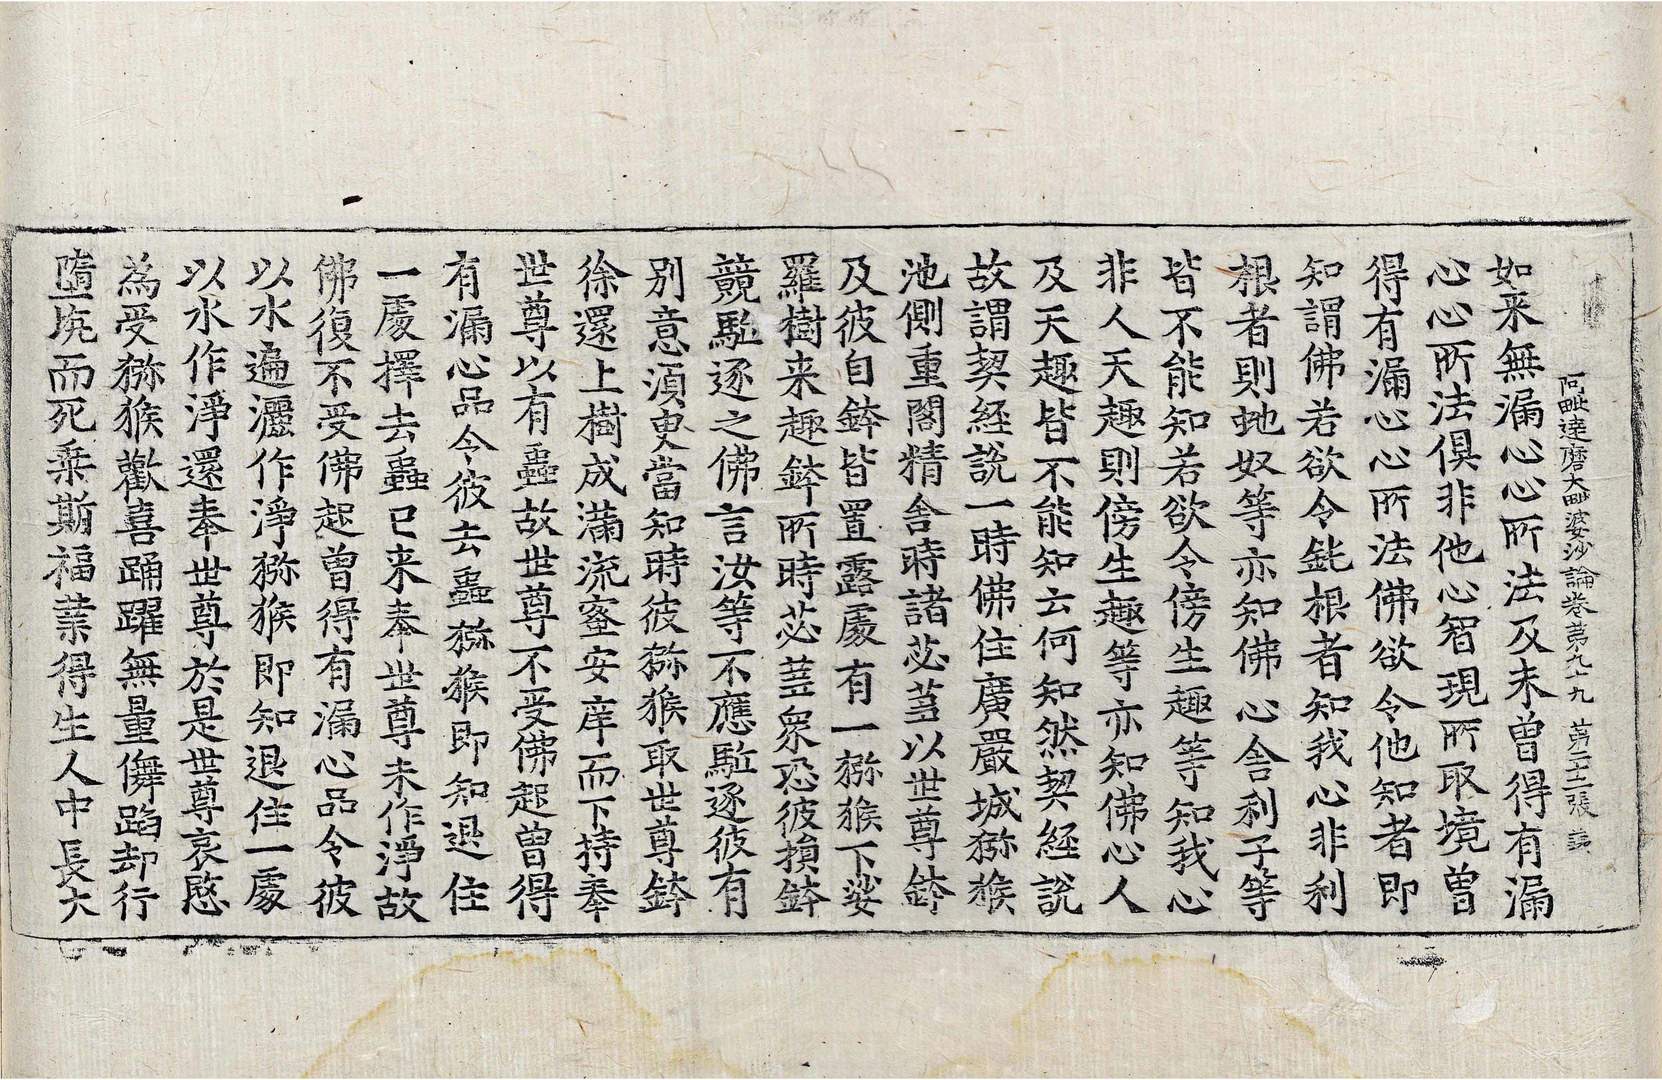 阿毗達磨大毗婆沙論卷第九十九　第二十二張　誐
如来無漏心心所法及未曾得有漏
心心所法俱非他心智現所取境曾
得有漏心心所法佛欲令他知者即
知謂佛若欲令鈍根者知我心非利
根者則虵奴等亦知佛心舍利子等
皆不能知若欲令傍生趣等知我心
非人天趣則傍生趣等亦知佛心人
及天趣皆不能知云何知然契經說
故謂契經說一時佛住廣嚴城獼猴
池側重閣精舍時諸苾蒭以世尊鉢
及彼自鉢皆置露處有一獼猴下娑
羅樹来趣鉢所時苾蒭衆恐彼損鉢
競駈逐之佛言汝等不應駈逐彼有
别意湏臾當知時彼獼猴取世尊鉢
徐還上樹成滿流蜜安庠而下持奉
世尊以有蟲故世尊不受佛起曾得
有漏心品令彼去蟲獼猴即知退住
一處擇去蟲已来奉世尊未作淨故
佛復不受佛起曾得有漏心品令彼
以水遍灑作淨獼猴即知退住一處
以水作淨還奉世尊於是世尊哀愍
為受獼猴歡喜踊躍無量儛蹈却行
墮坑而死乘斯福業得生人中長大